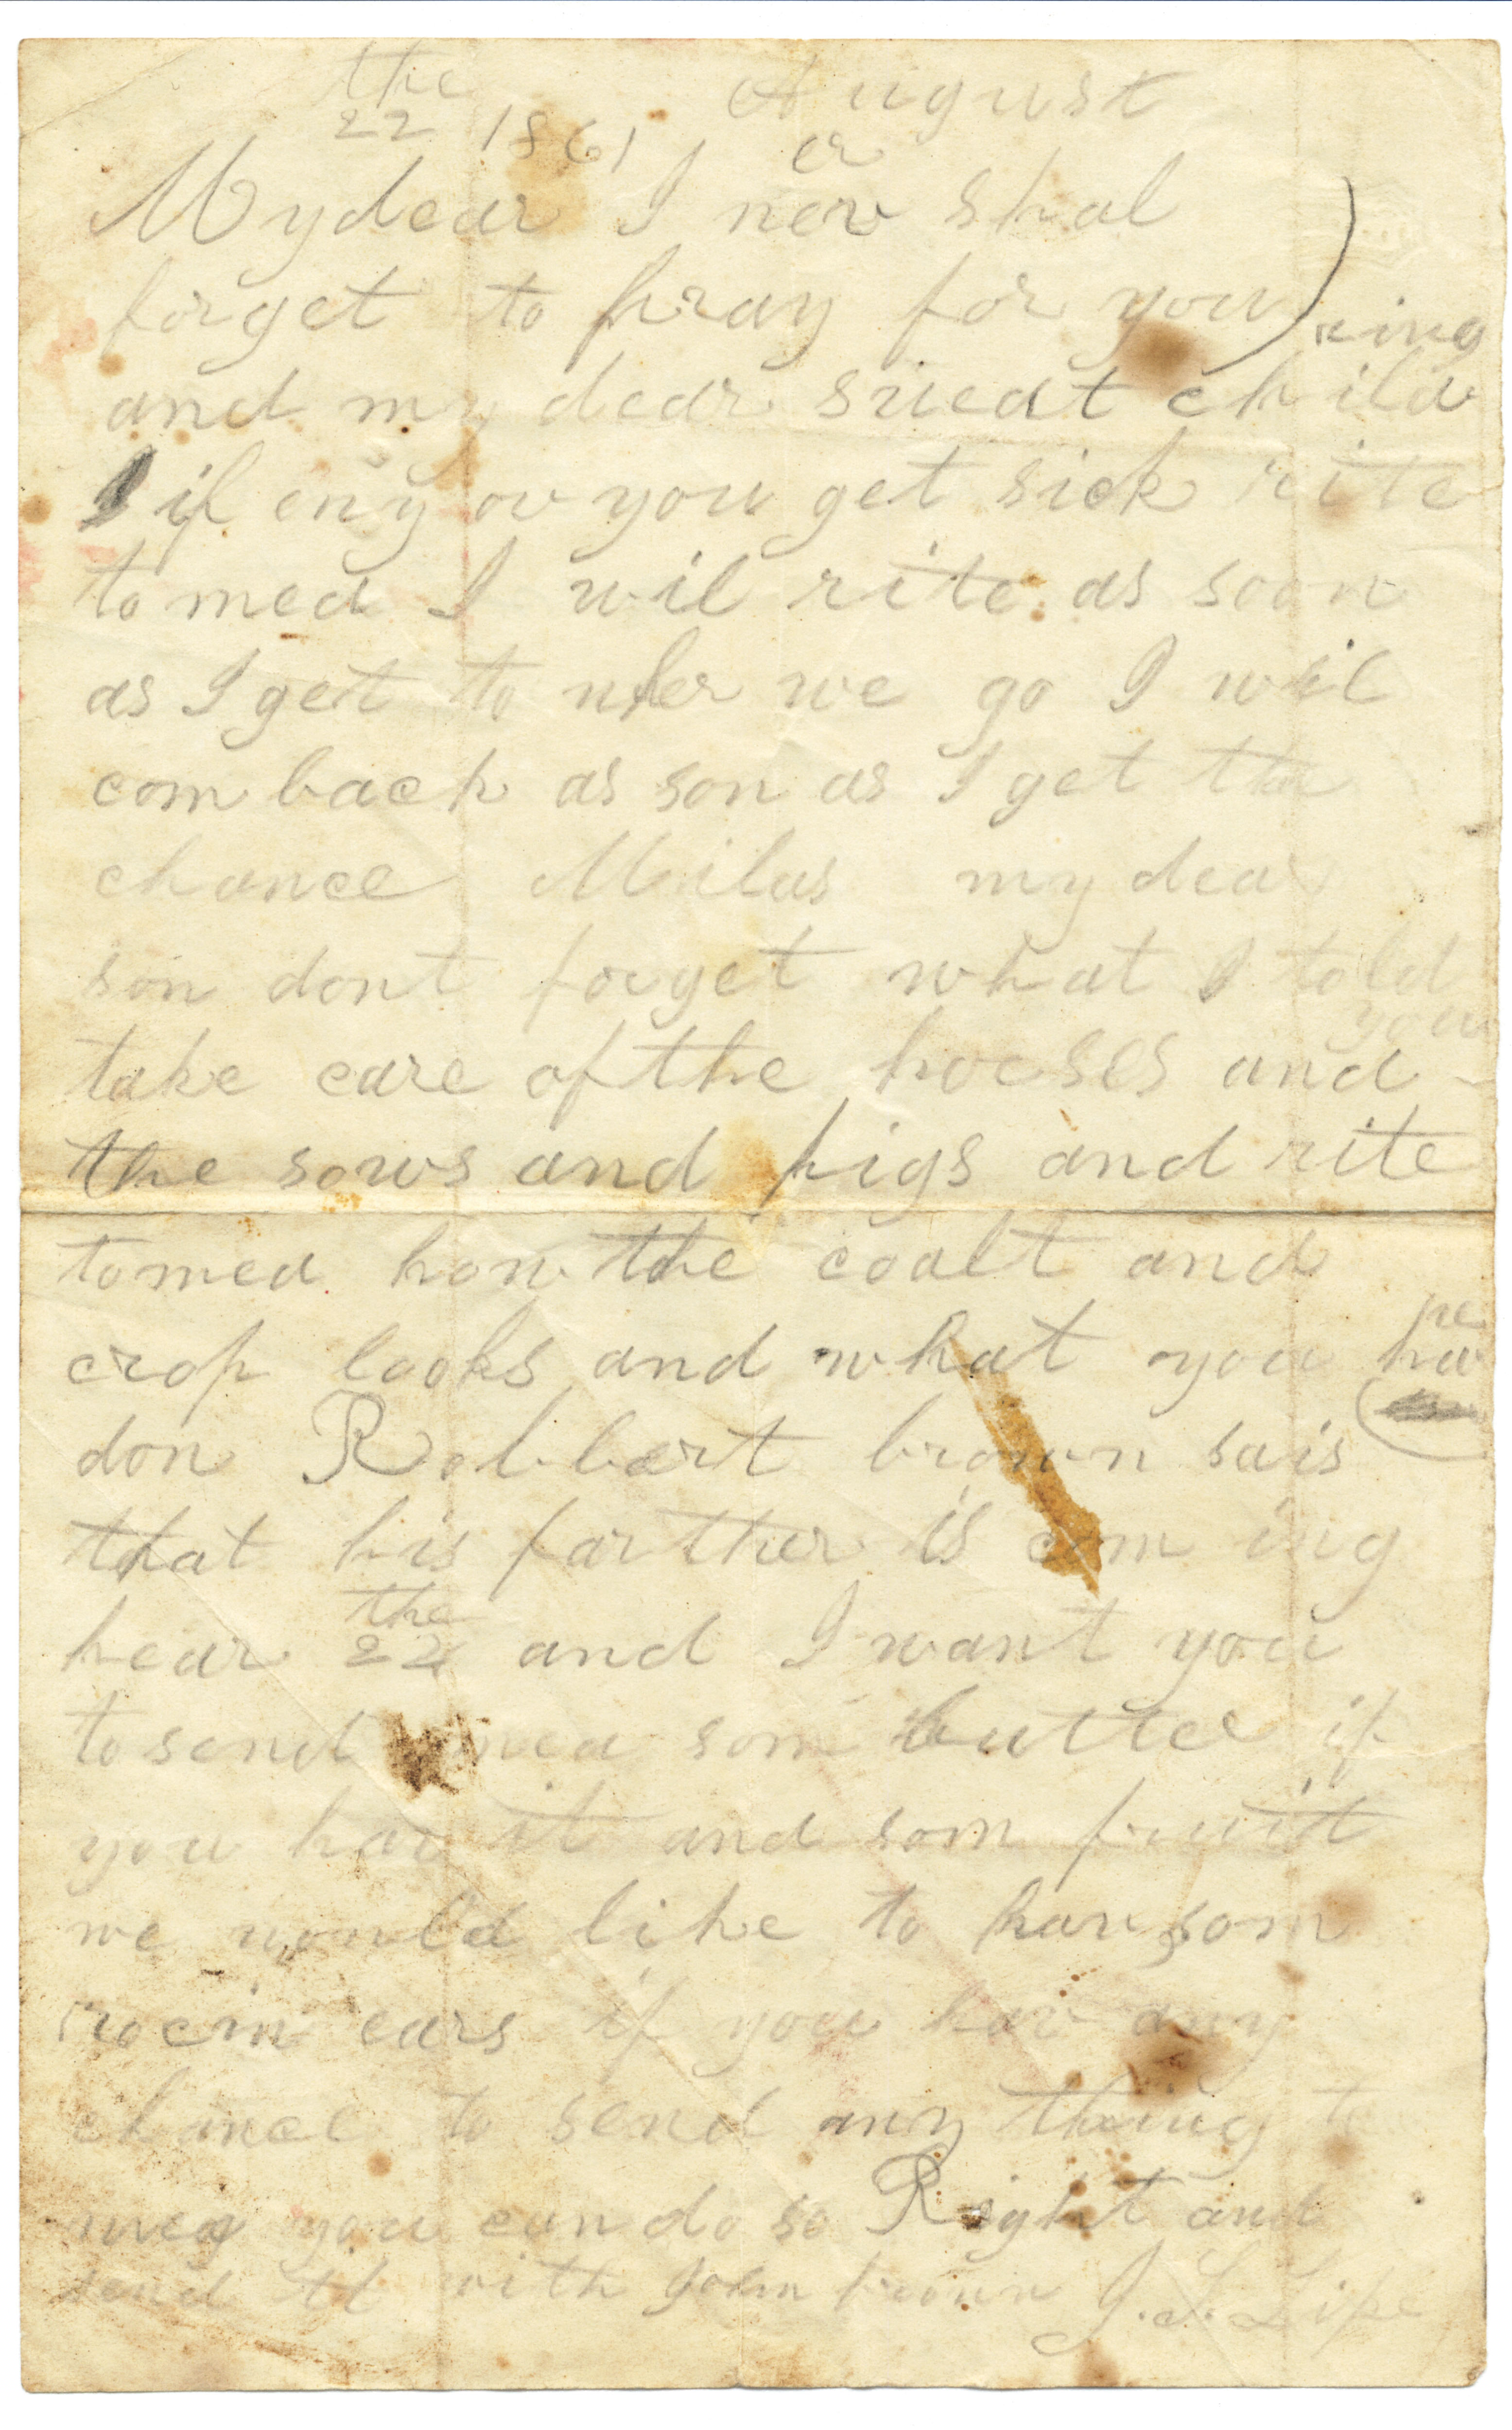 the August
22 1861
er
My dear I nev shal
forget to pray for you
ring
and my dear sweat child
if eny ov you get sick rite
to mea I wil rite as soon
as I get to wher we go I wil
com back as son as I get the
chance Milas my dear
son dont forget what I told
you
take care of the horses and
the sows and pigs and rite
to mea how the coalt and
crop looks and what you hav
don Robbert brown sais
that his farther is com ing
the
hear 22 and I want you
to send mea som butter if
you hav it and som fruit
we would like to hav som
ears if you hav any
chance to send any thing to
mea you can do so Right and
send it with John brown J. S. Lipe